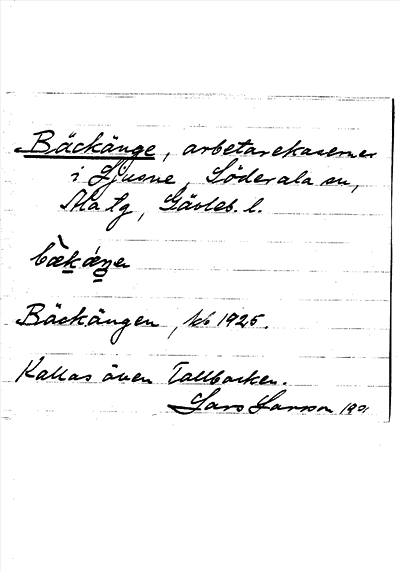 Bäckänge, arbetarekaserner
i Ljusne, Söderala sn,
Ala tg, Gävleb. l.
bæ̀kǽŋer
Bäckängen, kb 1925.
Kallas även Tallbacken.
Lars Larsson